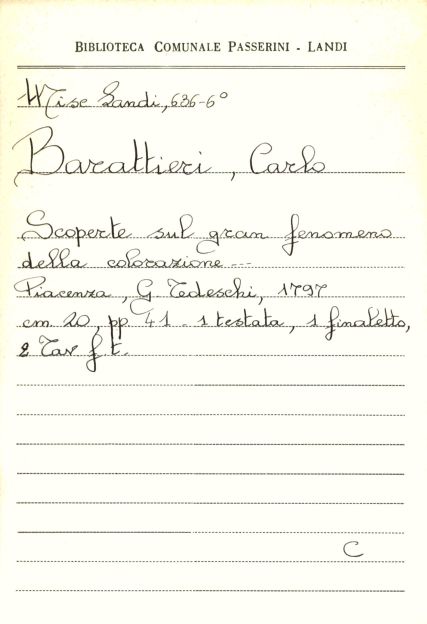 BIBLIOTECA COMUNALE PASSERINI - LANDI
Misc Landi, 686-6°
Barattieri, Carlo
Scoperte sul gran fenomeno
della colorazione ---
Piacenza, G. Tedeschi, 1797
cm. 20, pp 41 - 1 testata, 1 finaletto,
2 Tav f. t.
C